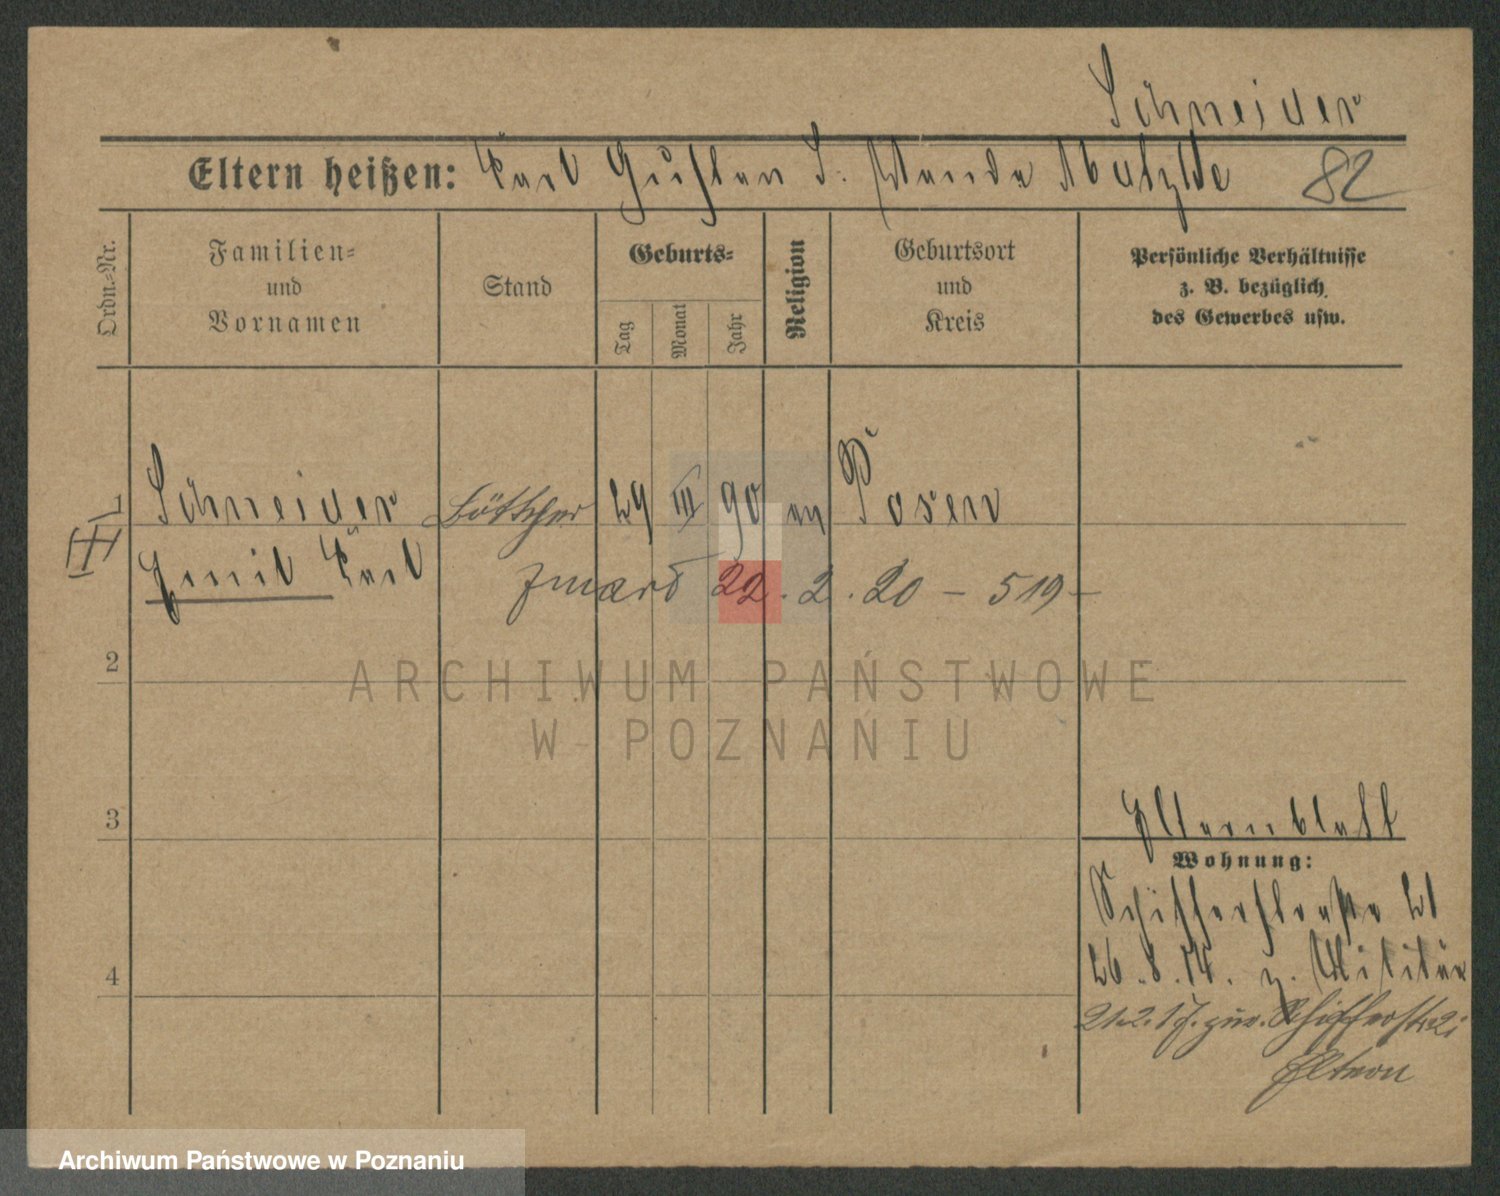 Schneider
Eltern heißen: Karl Gustav S. Wanda 82
Ordn.-Nr.
Familien-
und
Vornamen
Stand
Geburts-
Tag
Monat
Jahr
Religion
Geburtsort
und
Kreis
Persönliche Verhältnisse
z. B. bezüglich
des Gewerbes usw.
1 Schneider Böttcher 29 III 90 ev Posen
Emil Karl
zmarł 22.2.20 - 519 -
2
ARCHIWUM PAŃSTWOWE
W POZNANIU
3
Elternblatt
Wohnung:
Schifferstraße 21
4
26.8.14. z. Militär
21.2.17. zur. Schifferstr 21
Eltern
Archiwum Państwowe w Poznaniu